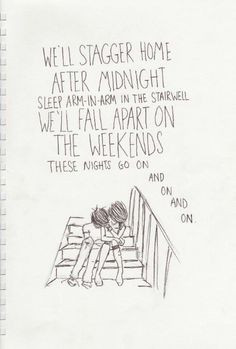 WE'LL STAGGER HOME
AFTER MIDNIGHT
SLEEP ARM-IN-ARM IN THE STAIRWELL
WE'LL FALL APART ON
THE WEEKENDS
THESE NIGHTS GO ON
AND
ON
AND
ON.